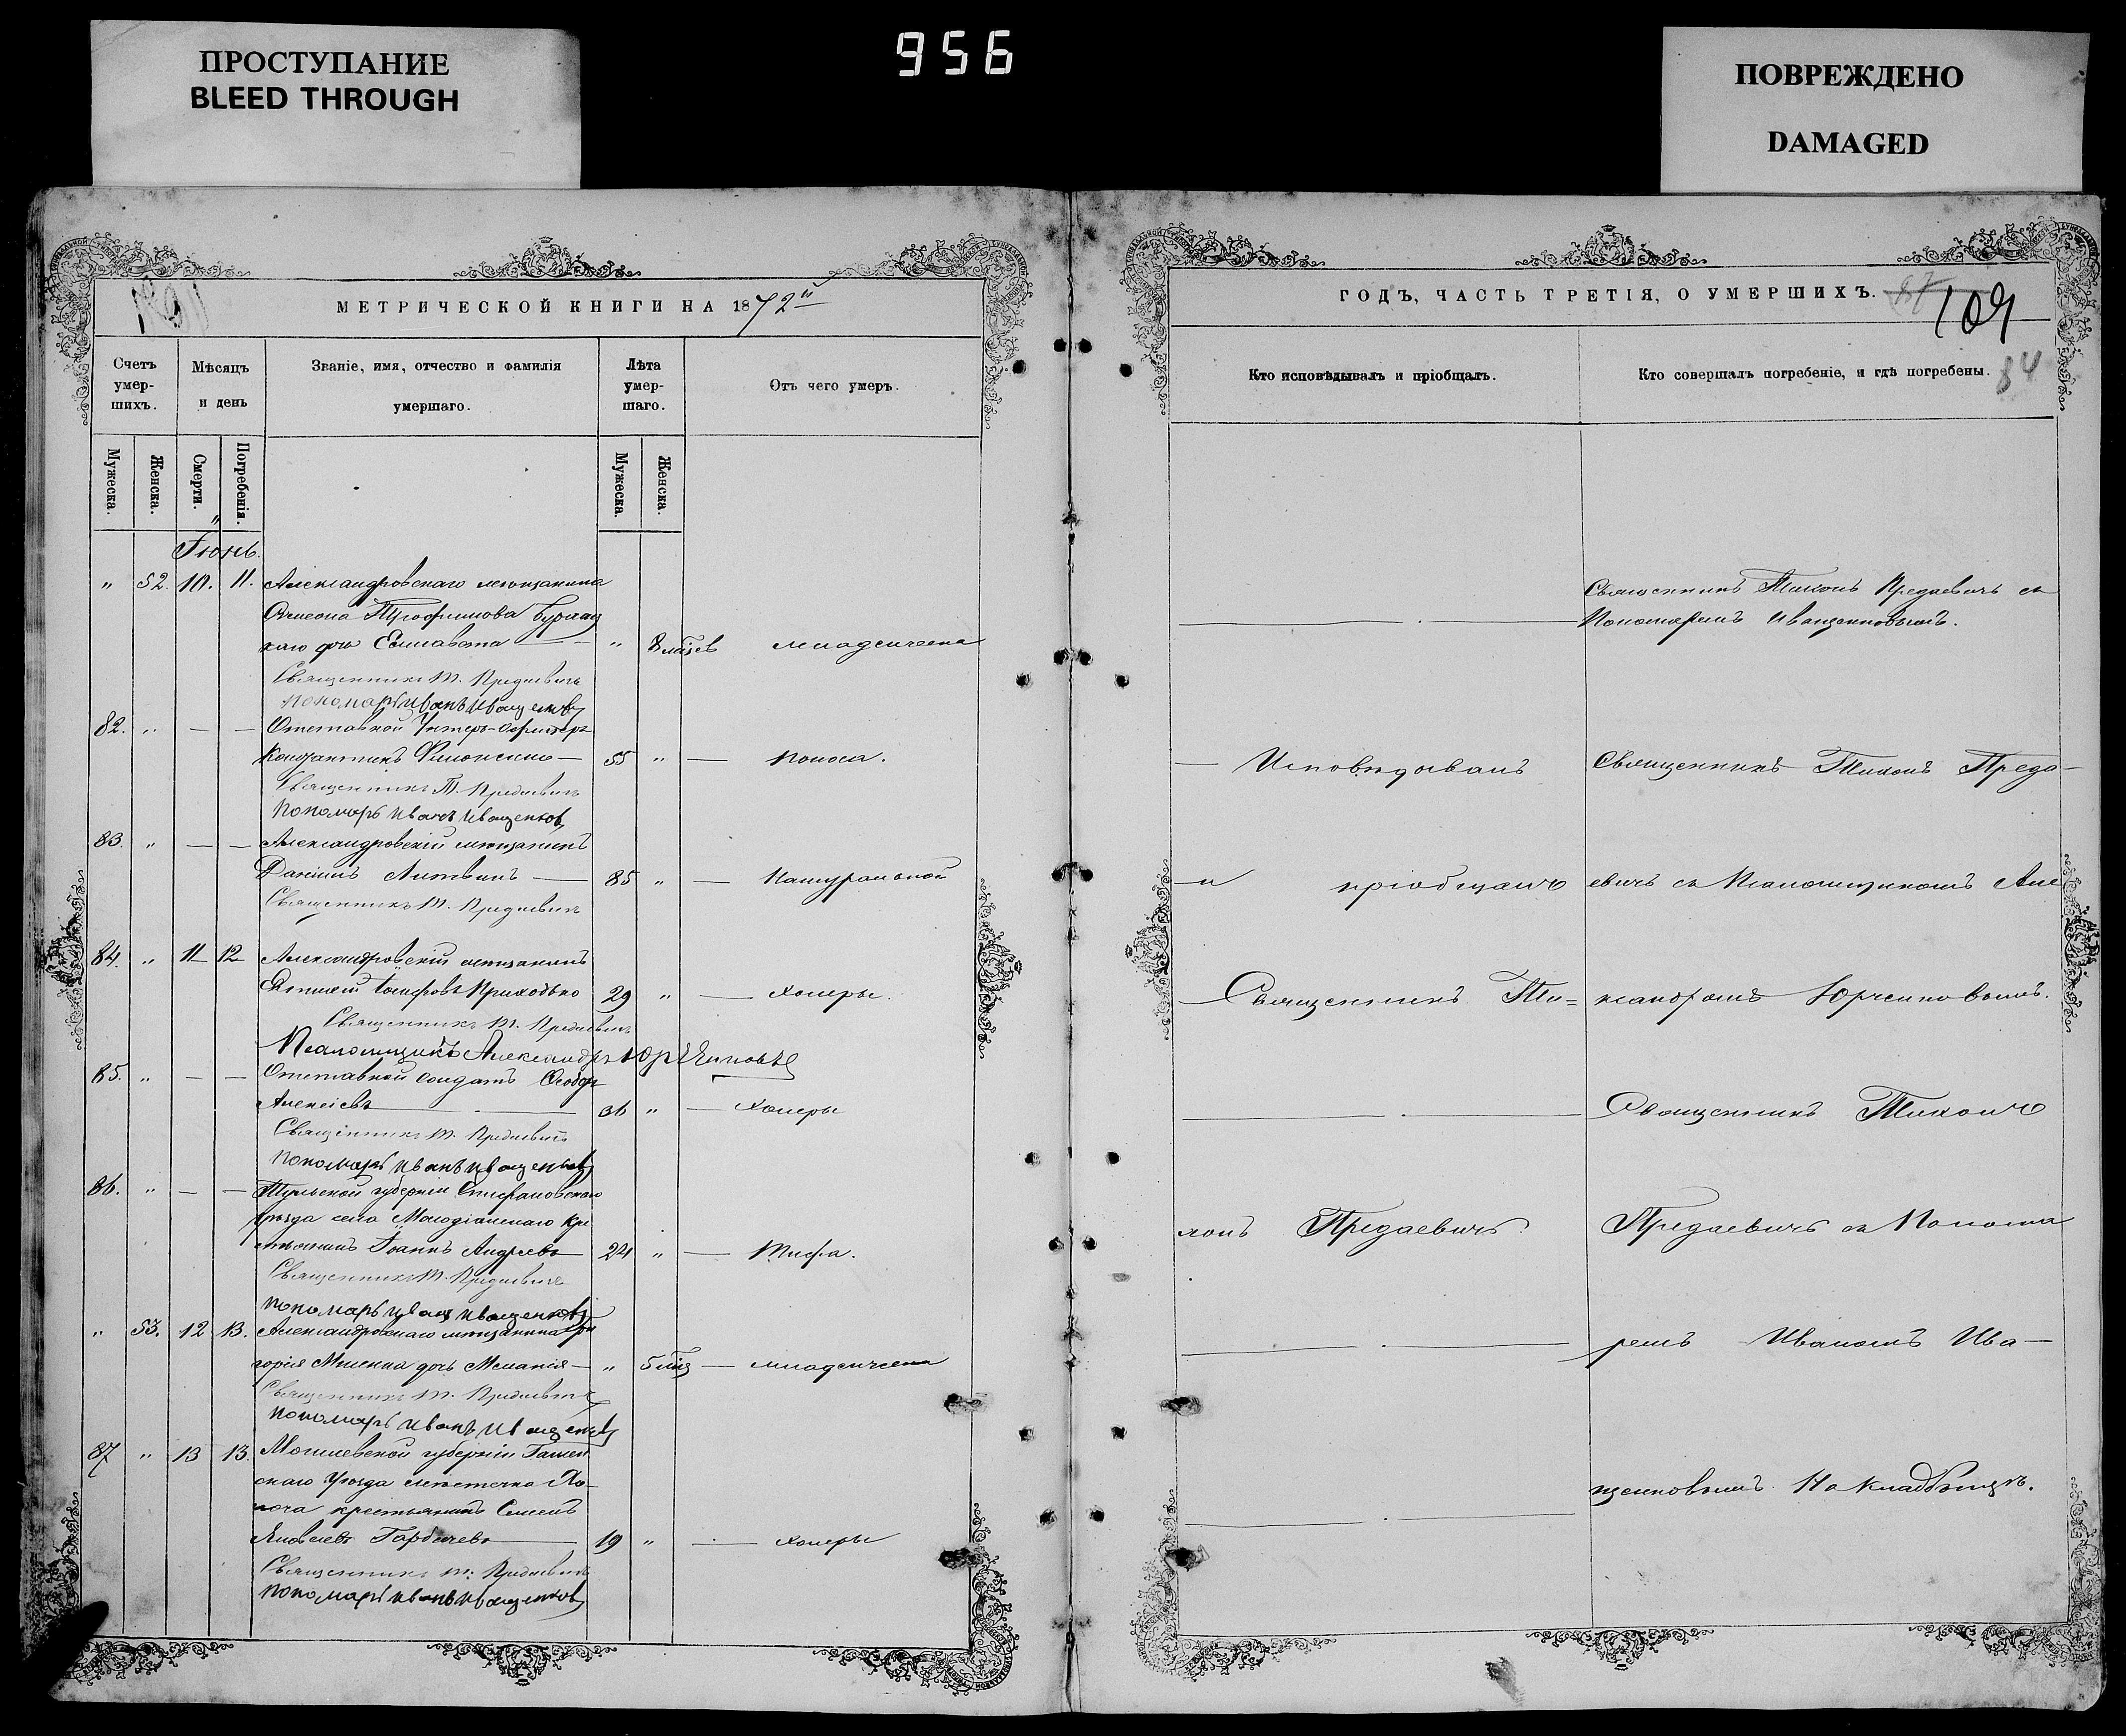 ПРОСТУПАНИЕ
BLEED THROUGH
956
ПОВРЕЖДЕНО
DAMAGED
МЕТРИЧЕСКОЙ КНИГИ НА 1872й
Счетъ умер-шихъ.
Мѣсяцъ и день
Званіе, имя, отчество и фамилія умершаго.
Лѣта умер-шаго.
Отъ чего умеръ.
Мужеска. Женска. Смерти. Погребенія. Мужеска. Женска.
Іюнь.
" 52. 10. 11. Александровскаго мѣщанина
Симеона Трофимова
дочь Елисавета — " 8 мѣсев младенческа
Священникъ Т. Предаевичъ
пономарь Иванъ Иващенковъ
82. " — — Отставной Унтеръ-Офицеръ
Константинъ Филоненко — 55 " — Поноса.
Священникъ Т. Предаевичъ
Пономарь Иванъ Иващенковъ
83. " — — Александровскій мѣщанинъ
Даніилъ Литвинъ — 85 " — Натуральной
Священникъ Т. Предаевичъ
84. " 11 12 Александровскій мѣщанинъ
Евтихій Іосифовъ Приходько 29 " — холеры.
Священникъ Т. Предаевичъ
Псаломщикъ Александръ Юрченковъ
85. " — — Отставной солдатъ Ѳеодоръ
Алексіевъ — 36 " — Холеры
Священникъ Т. Предаевичъ
пономарь Иванъ Иващенковъ
86. " — — Тульской губерніи Епифановскаго
уѣзда села Кре
стьянинъ Іоаннъ Андреевъ — 24 " — Тифа.
Священникъ Т. Предаевичъ
пономарь Иванъ Иващенковъ
" 53. 12 13. Александровскаго мѣщанина Гри
горія дочь Меланія — " 5 мѣс — младенческа
Священникъ Т. Предаевичъ
пономарь Иванъ Иващенковъ
87 " 13 13. Могилевской губерніи
скаго Уѣзда мѣстечка Хо-
крестьянинъ Семенъ
Яковлевъ Горбачевъ — 19 " — холеры
Священникъ Т. Предаевичъ
пономарь Иванъ Иващенковъ
ГОДЪ, ЧАСТЬ ТРЕТІЯ, О УМЕРШИХЪ.
109
84
Кто исповѣдывалъ и пріобщалъ.
Кто совершалъ погребеніе, и гдѣ погребены.
Священникъ Тихонъ Предаевичъ съ
Пономаремъ Иващенковымъ.
— Исповѣдывалъ Священникъ Тихонъ Преда-
— и пріобщалъ евичъ съ Псаломщикомъ Але
— Священникъ Ти= ксандромъ Юрченковымъ.
Священникъ Тихонъ
хонъ Предаевичъ. Предаевичъ съ Понома
ремъ Иваномъ Ива-
щенковымъ. На Кладбищѣ.